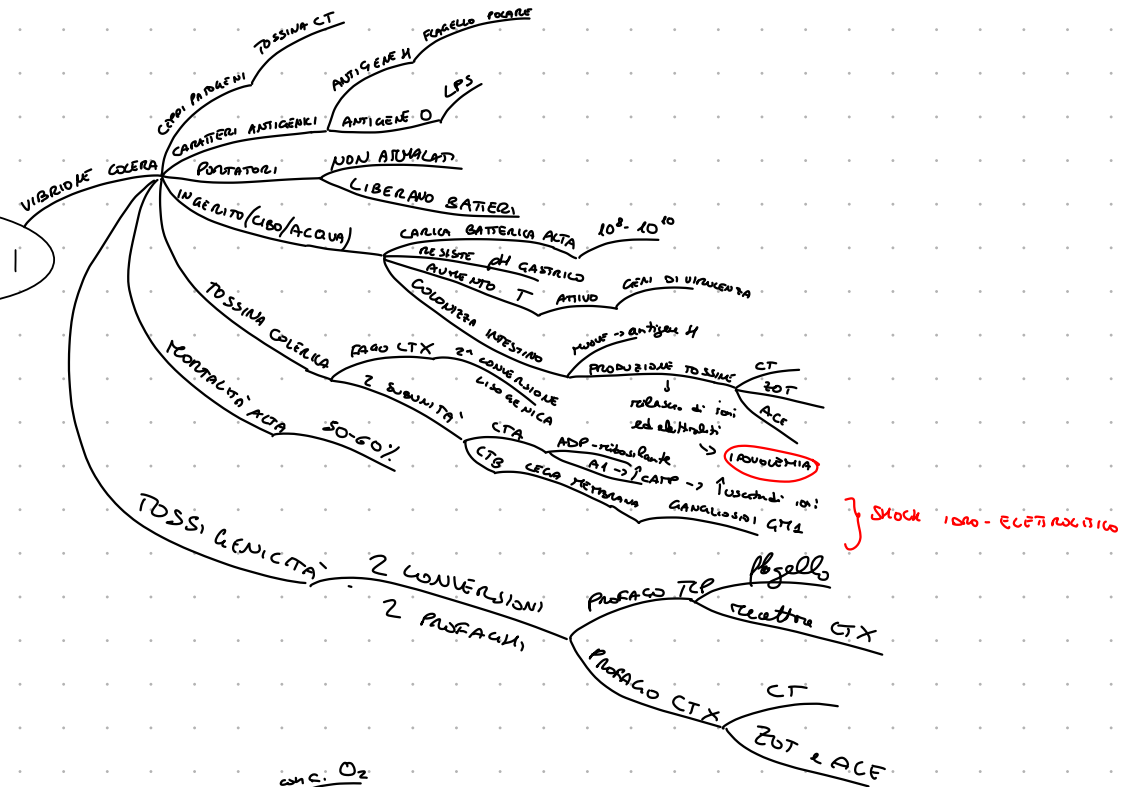 1
VIBRIONE COLERA
CEPPI PATOGENI
TOSSINA CT
CARATTERI ANTIGENICI
ANTIGENE H
FLAGELLO POLARE
ANTIGENE O
LPS
PORTATORI
NON AMMALATI
LIBERANO BATTERI
INGERITO (CIBO/ACQUA)
CARICA BATTERICA ALTA
10⁸- 10¹⁰
RESISTE pH GASTRICO
AUMENTO T
ATTIVO
GENI DI VIRULENZA
COLONIZZA INTESTINO
MUOVE -> antigene H
PRODUZIONE TOSSINE
CT
ZOT
ACE
↓
rilascio di ioni
ed elettroliti
-> IPOVOLEMIA
TOSSINA COLERICA
FAGO CTX
2ª CONVERSIONE
LISOGENICA
2 SUBUNITÀ
CTA
ADP-ribosilante
A1 -> ↑cAMP -> ↑uscita di ioni
CTB
LEGA MEMBRANA
GANGLIOSIDI GM1
} SHOCK IDRO-ELETTROLITICO
MORTALITÀ ALTA
50-60%
TOSSIGENICITÀ
2 CONVERSIONI
2 PROFAGHI
PROFAGO TCP
flagello
recettore CTX
PROFAGO CTX
CT
ZOT e ACE
conc. O₂